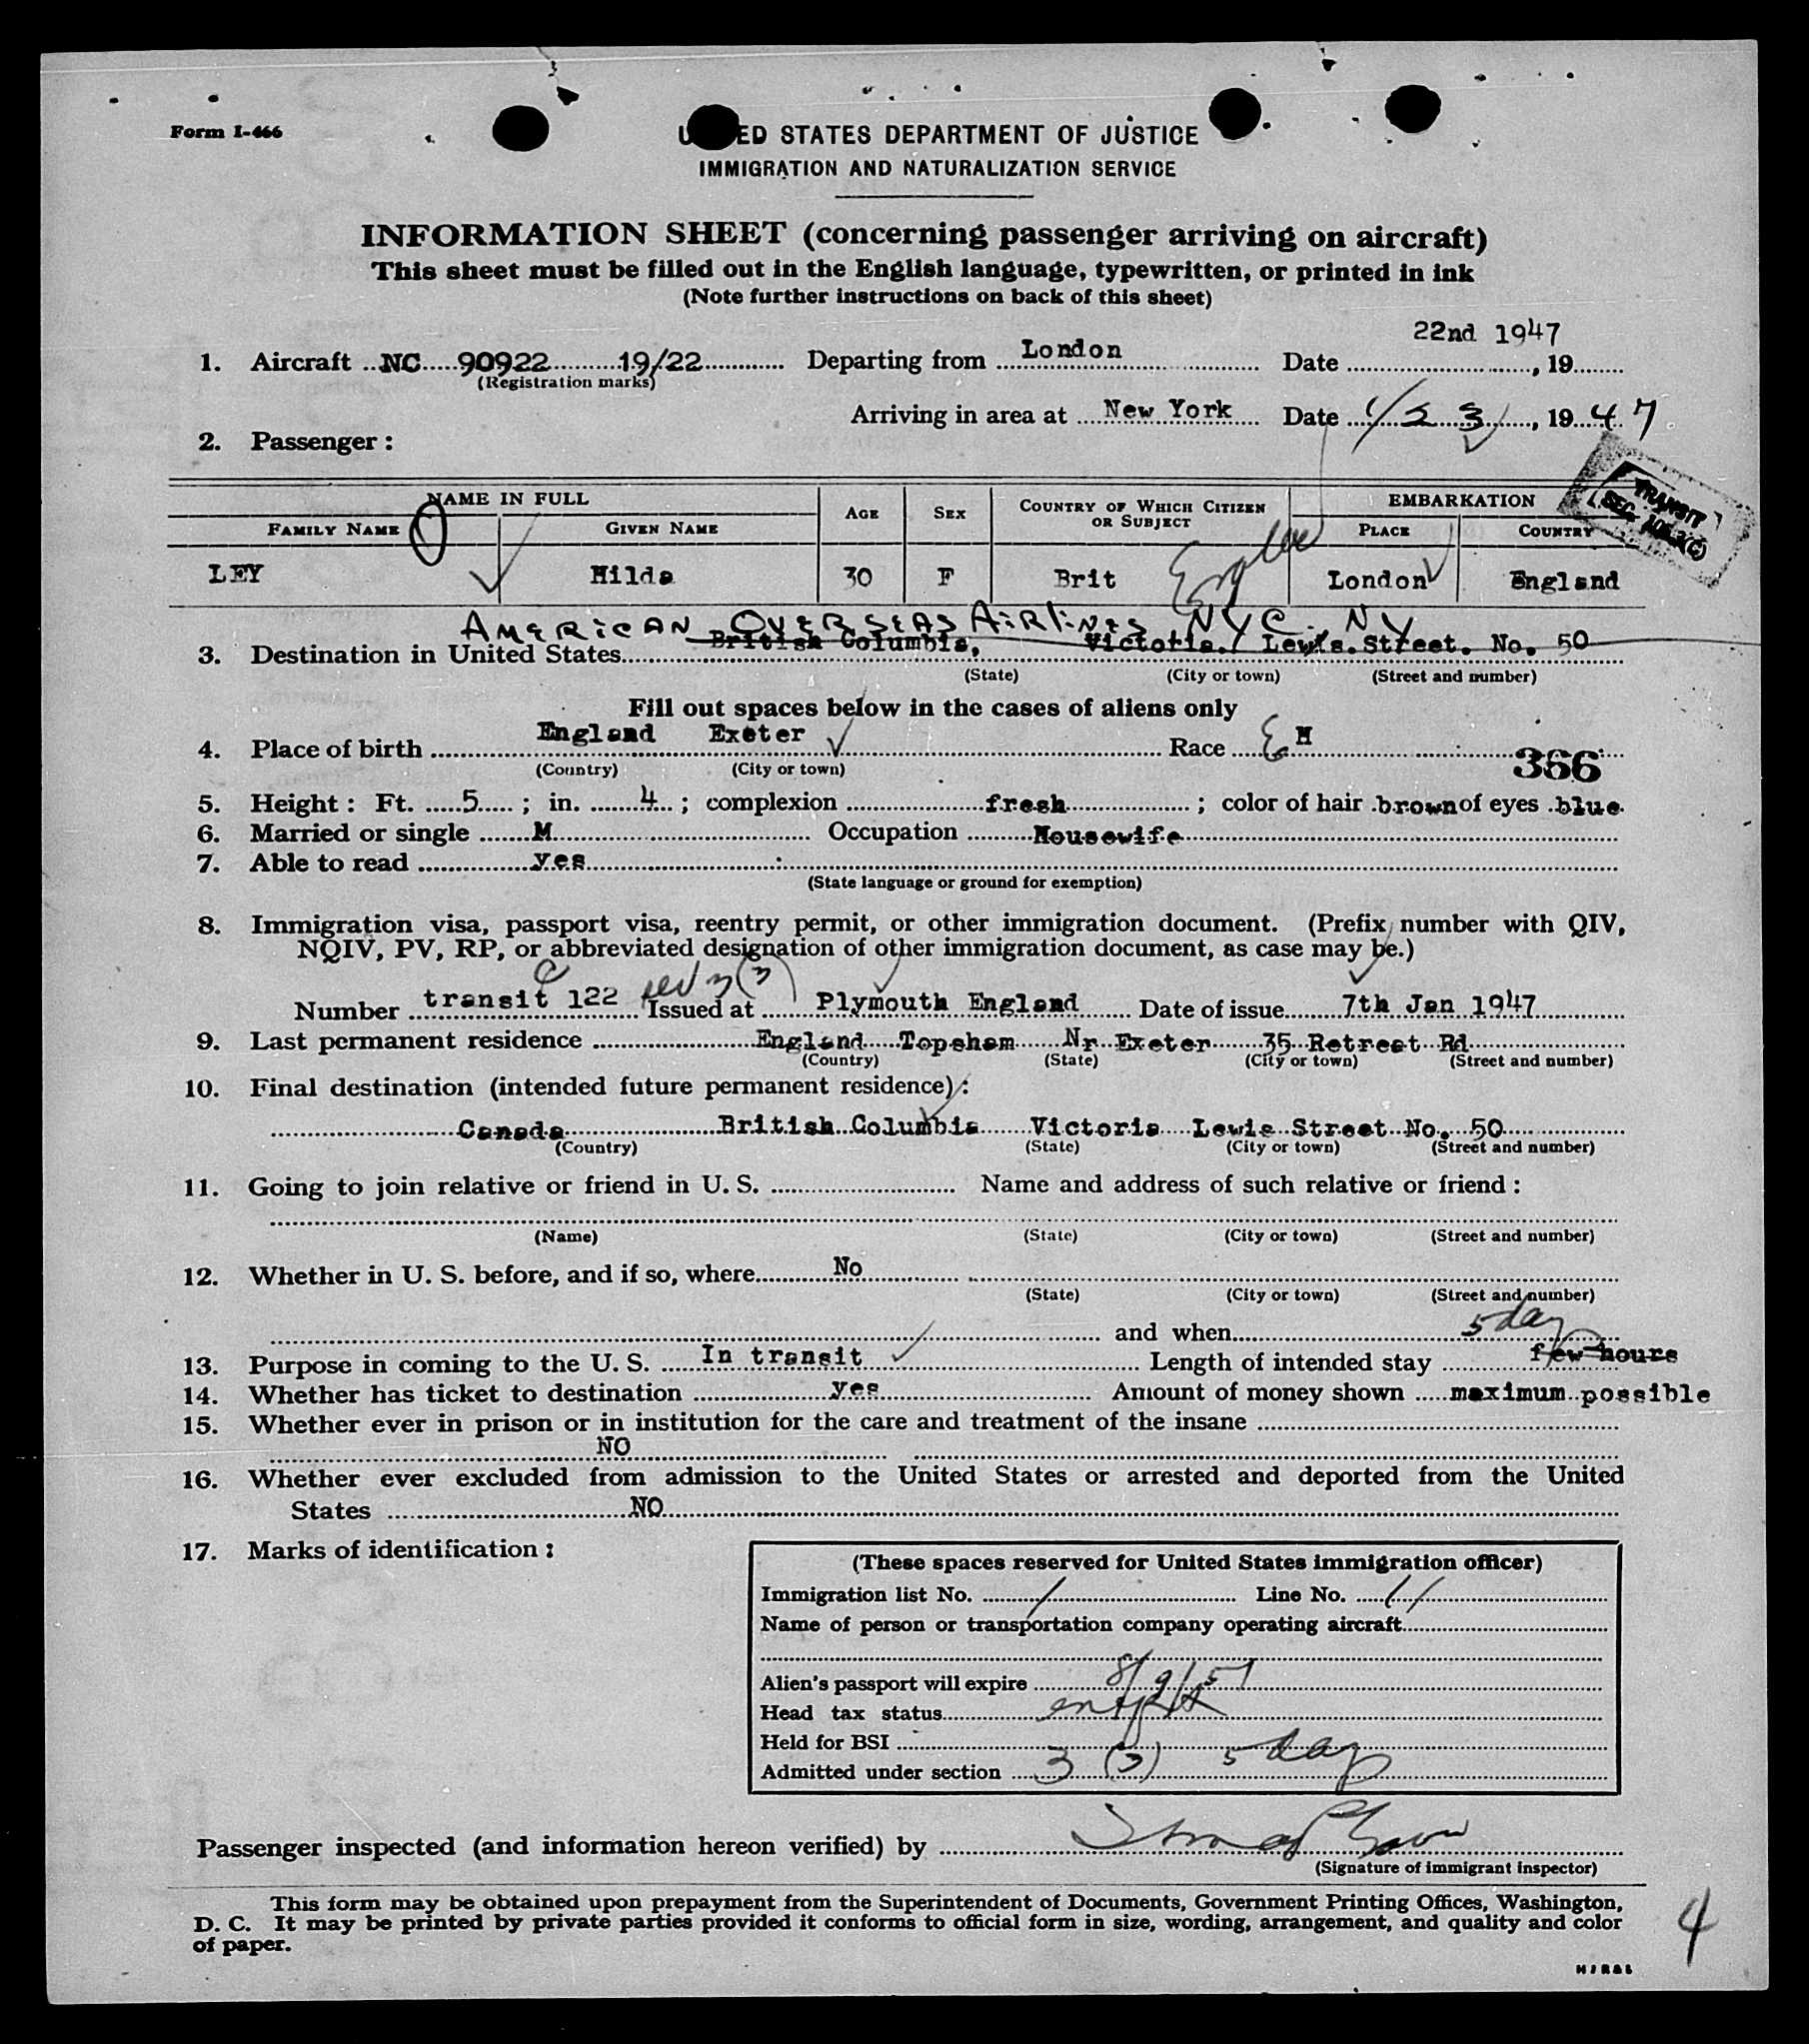 Form I-466
UNITED STATES DEPARTMENT OF JUSTICE
IMMIGRATION AND NATURALIZATION SERVICE
INFORMATION SHEET (concerning passenger arriving on aircraft)
This sheet must be filled out in the English language, typewritten, or printed in ink
(Note further instructions on back of this sheet)
22nd 1947
1. Aircraft NC 90922 19/22 Departing from London Date , 19
(Registration marks)
Arriving in area at New York Date 1/23 , 19 47
2. Passenger :
TRANSIT
NAME IN FULL AGE SEX COUNTRY OF WHICH CITIZEN OR SUBJECT EMBARKATION
FAMILY NAME GIVEN NAME PLACE COUNTRY
LEY Hilda 30 F Brit London England
AMERICAN OVERSEAS AIRLINES NYC. NY
3. Destination in United States British Columbia, Victoria. Lewis. Street. No. 50
(State) (City or town) (Street and number)
Fill out spaces below in the cases of aliens only
4. Place of birth England Exeter Race
(Country) (City or town)
366
5. Height : Ft. 5 ; in. 4 ; complexion fresh ; color of hair brown of eyes blue.
6. Married or single M Occupation Housewife
7. Able to read yes
(State language or ground for exemption)
8. Immigration visa, passport visa, reentry permit, or other immigration document. (Prefix number with QIV,
NQIV, PV, RP, or abbreviated designation of other immigration document, as case may be.)
Number transit 122 3(3) Issued at Plymouth England Date of issue 7th Jan 1947
9. Last permanent residence England Topsham Nr Exeter 35 Retreet Rd
(Country) (State) (City or town) (Street and number)
10. Final destination (intended future permanent residence) :
Canada British Columbia Victoria Lewis Street No. 50
(Country) (State) (City or town) (Street and number)
11. Going to join relative or friend in U. S. Name and address of such relative or friend :
(Name) (State) (City or town) (Street and number)
12. Whether in U. S. before, and if so, where No
(State) (City or town) (Street and number)
and when
5 day
13. Purpose in coming to the U. S. In transit Length of intended stay few hours
14. Whether has ticket to destination yes Amount of money shown maximum possible
15. Whether ever in prison or in institution for the care and treatment of the insane
NO
16. Whether ever excluded from admission to the United States or arrested and deported from the United
States NO
17. Marks of identification :
(These spaces reserved for United States immigration officer)
Immigration list No. 1 Line No. 11
Name of person or transportation company operating aircraft
Alien's passport will expire 8/9/51
Head tax status
Held for BSI
Admitted under section 3 (3) 5 day
Passenger inspected (and information hereon verified) by
(Signature of immigrant inspector)
This form may be obtained upon prepayment from the Superintendent of Documents, Government Printing Offices, Washington,
D. C. It may be printed by private parties provided it conforms to official form in size, wording, arrangement, and quality and color
of paper.
4